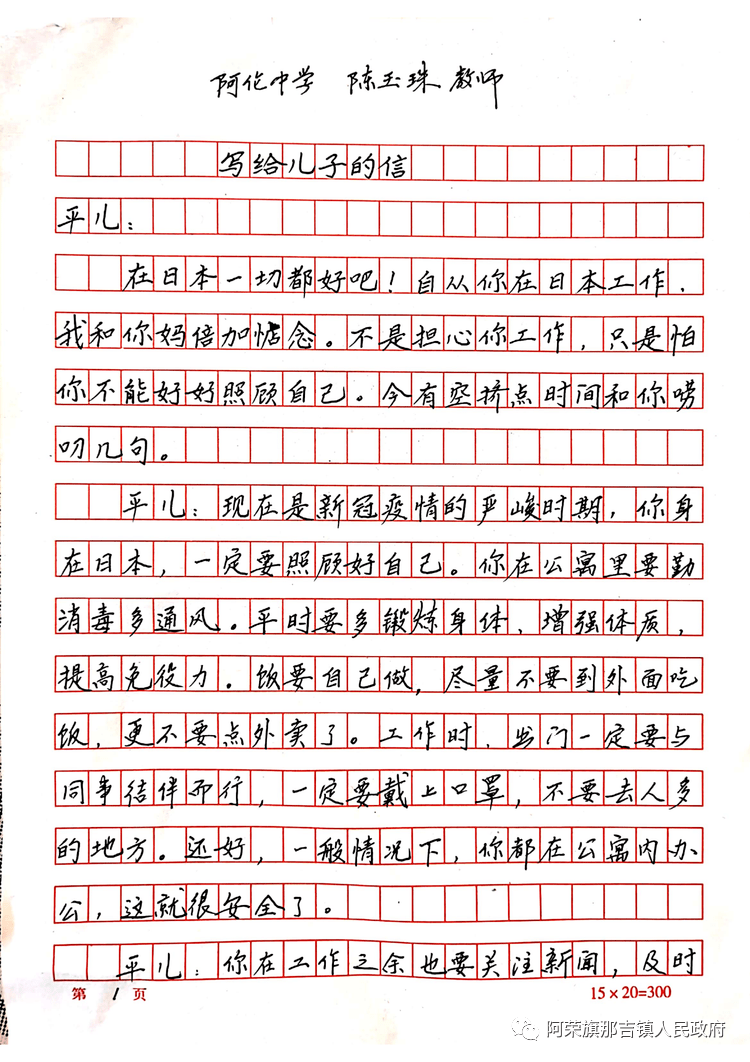 阿伦中学 陈玉珠 教师
写给儿子的信
平儿：
在日本一切都好吧！自从你在日本工作，
我和你妈倍加惦念。不是担心你工作，只是怕
你不能好好照顾自己。今有空挤点时间和你唠
叨几句。
平儿：现在是新冠疫情的严峻时期，你身
在日本，一定要照顾好自己。你在公寓里要勤
消毒多通风。平时要多锻炼身体，增强体质，
提高免役力。饭要自己做，尽量不要到外面吃
饭，更不要点外卖了。工作时，出门一定要与
同事结伴而行，一定要戴上口罩，不要去人多
的地方。还好，一般情况下，你都在公寓内办
公，这就很安全了。
平儿：你在工作之余也要关注新闻，及时
第 1 页 15×20=300
阿荣旗那吉镇人民政府